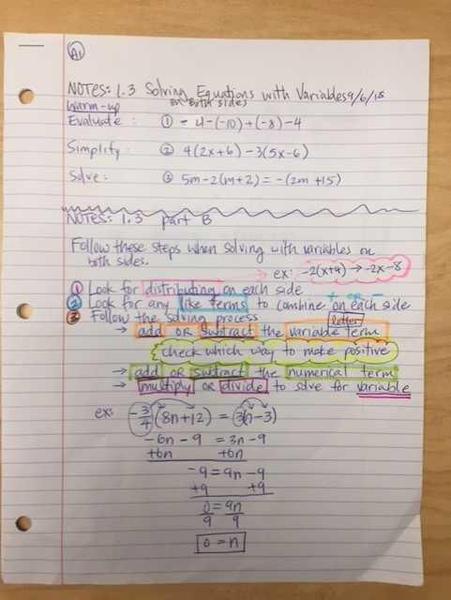 A1
NOTES: 1.3 Solving Equations with Variables 9/6/18
on Both sides
Warm-up
Evaluate: ① = 4-(-10)+(-8)-4
Simplify: ② 4(2x+6) - 3(5x-6)
Solve: ③ 5m-2(m+2) = -(2m+15)
NOTES: 1.3 part B
Follow these steps when solving with variables on
both sides.
ex: -2(x+4) → -2x-8
① Look for distributing on each side
② Look for any like terms to combine on each side
③ Follow the solving process
letter
→ add or subtract the variable term
check which way to make positive
→ add or subtract the numerical term
→ multiply or divide to solve for variable
ex: -3/4 (8n+12) = 3(n-3)
-6n - 9 = 3n - 9
+6n +6n
-9 = 9n - 9
+9 +9
0 = 9n
9 9
0 = n